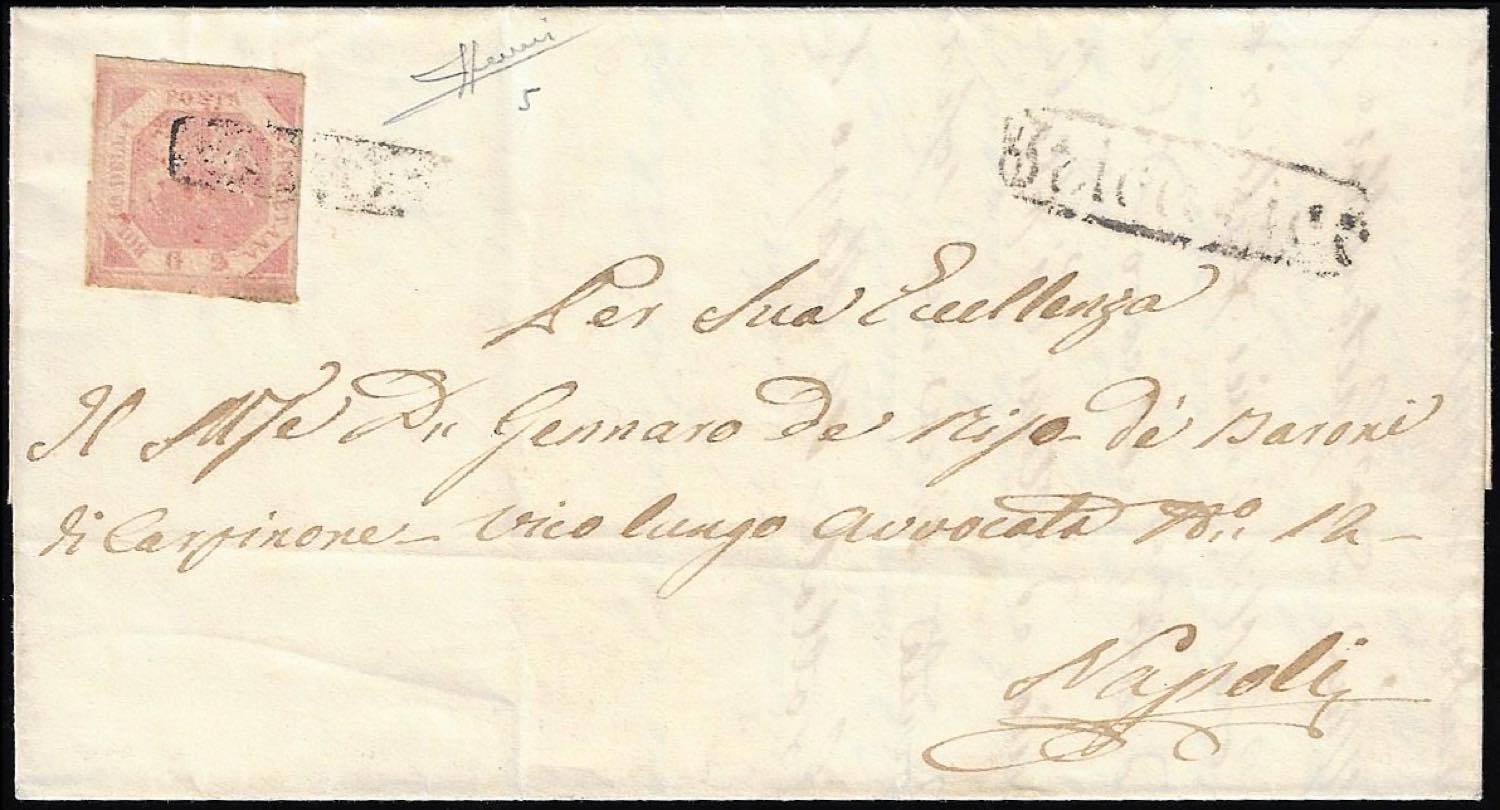 POSTA NAPOLETANA
G. 2
5
Per Sua Eccellenza
Il D.n Gennaro de Riso de' Baroni
di Carpinone - Vico lungo Avvocata N.o 12 -
Napoli